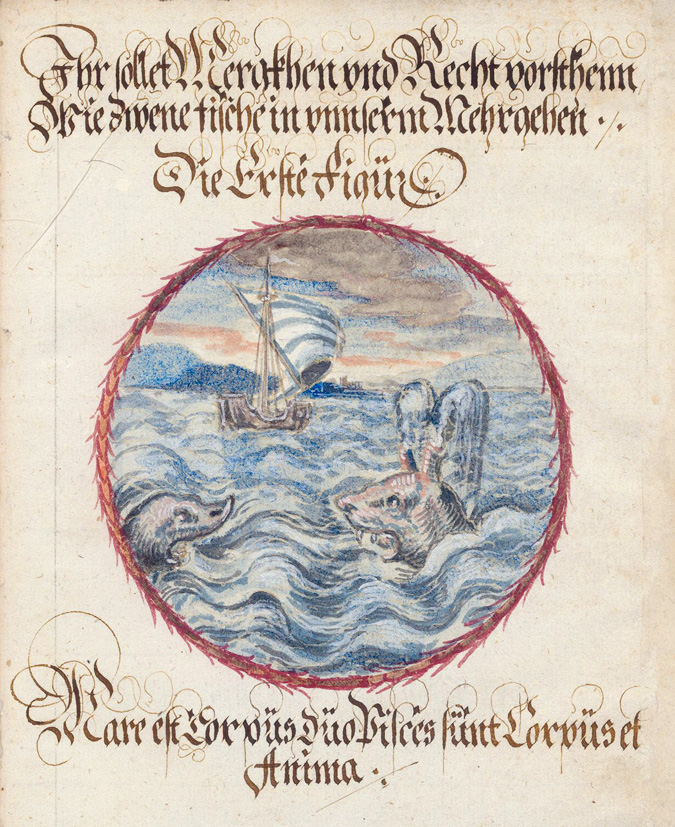 Ihr sollet Mergkhen vnd Recht vorsthenn
Wie zwene fische in vnnserm Mehr gehen ./.
Die Erste figür
Mare est Corpüs düo Pisces sünt Corpüs et
Anima .